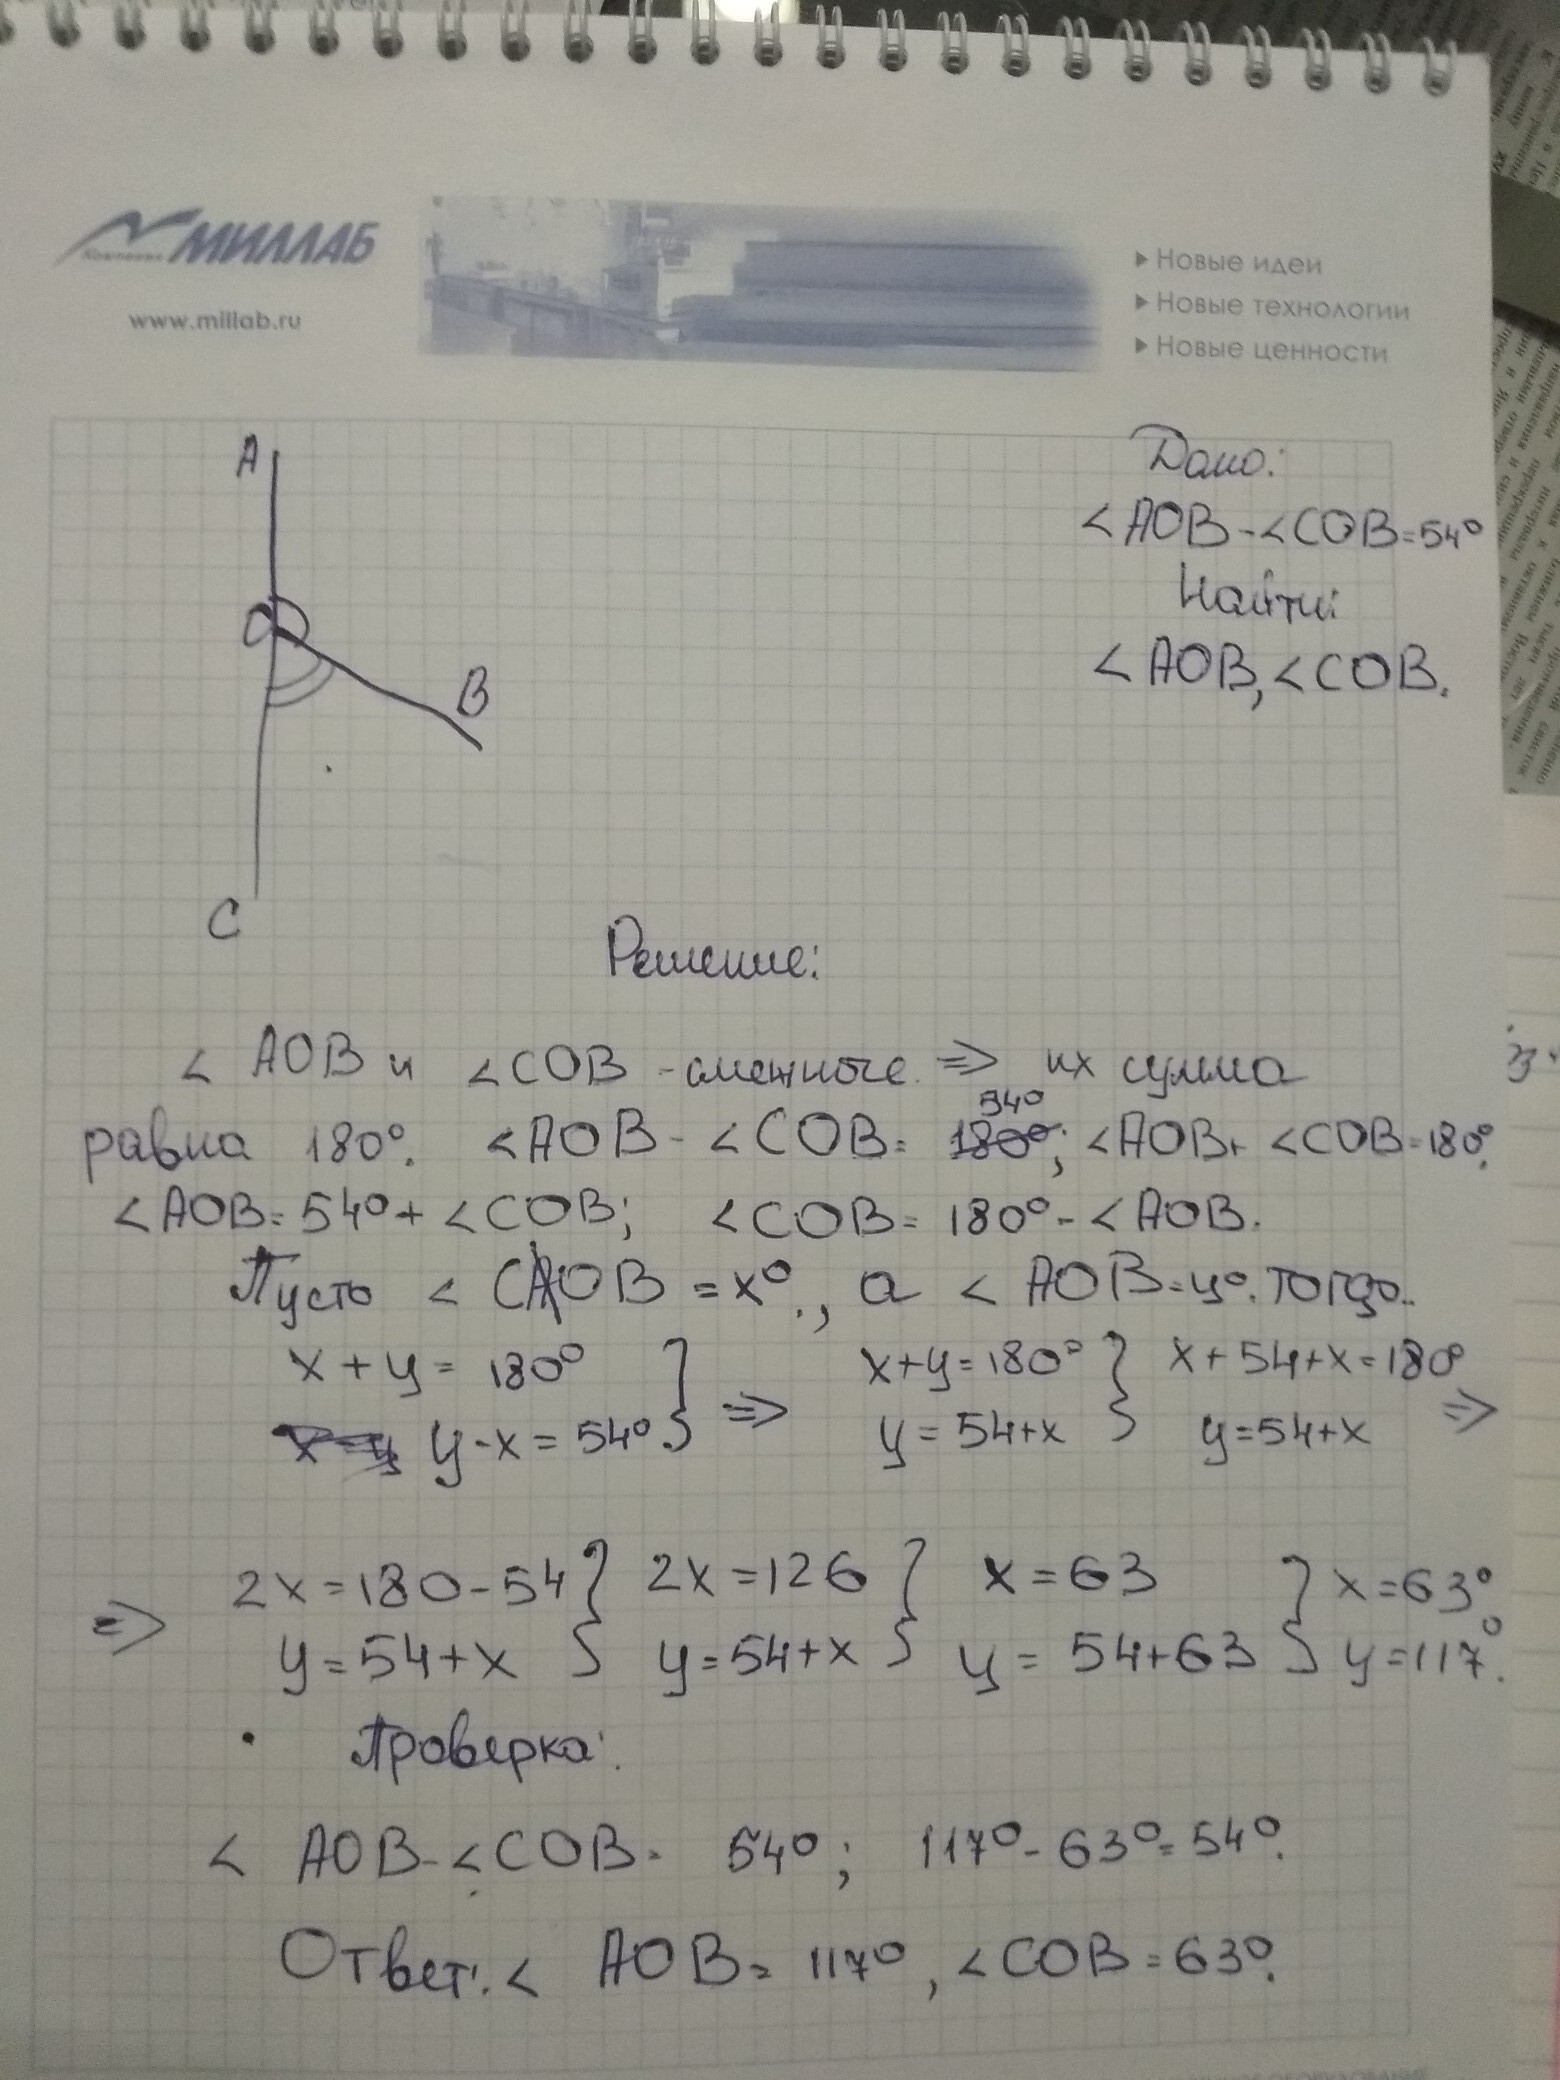 Компания МИЛЛАБ
www.millab.ru
Новые идеи
Новые технологии
Новые ценности
A
O
B
C
Дано:
<AOB-<COB=54°
Найти:
<AOB,<COB.
Решение:
< AOB и <COB - смежные => их сумма
54°
равна 180°. <AOB - <COB= 180°; <AOB+ <COB=180°.
<AOB=54°+<COB; <COB=180°-<AOB.
Пусть < COB = x°, а < AOB=y°. Тогда..
x+y=180° } => x+y=180° } x+54+x=180°
y-x=54°. y=54+x y=54+x =>
=> 2x=180-54 } 2x=126 } x=63 } x=63°
y=54+x y=54+x y=54+63 y=117°.
Проверка:
< AOB-<COB= 54°; 117°-63°=54°.
Ответ: < AOB= 117°, <COB=63°.